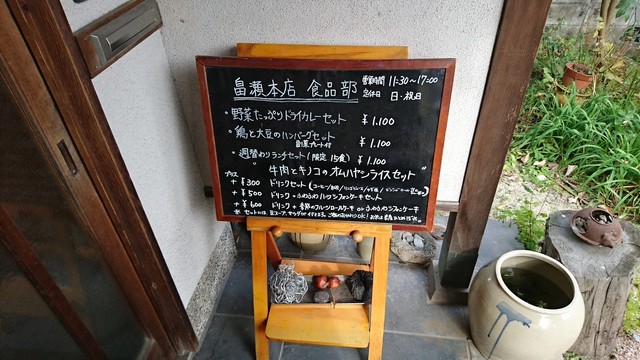 畠瀬本店 食品部
営業時間 11:30〜17:00
定休日 日・祝日
・野菜たっぷりドライカレーセット ¥1.100
・鶏と大豆のハンバーグセット ¥1.100
・週替わりランチセット(限定 15食) ¥1.100
"牛肉とキノコのオムハヤシライスセット"
プラス
+¥300 ドリンクセット(コーヒー/紅茶/
+¥500 ドリンク+ふわふわハーフシフォンケーキセット
+¥600 ドリンク+季節のフルーツロールケーキ or ふわふわシフォンケーキ